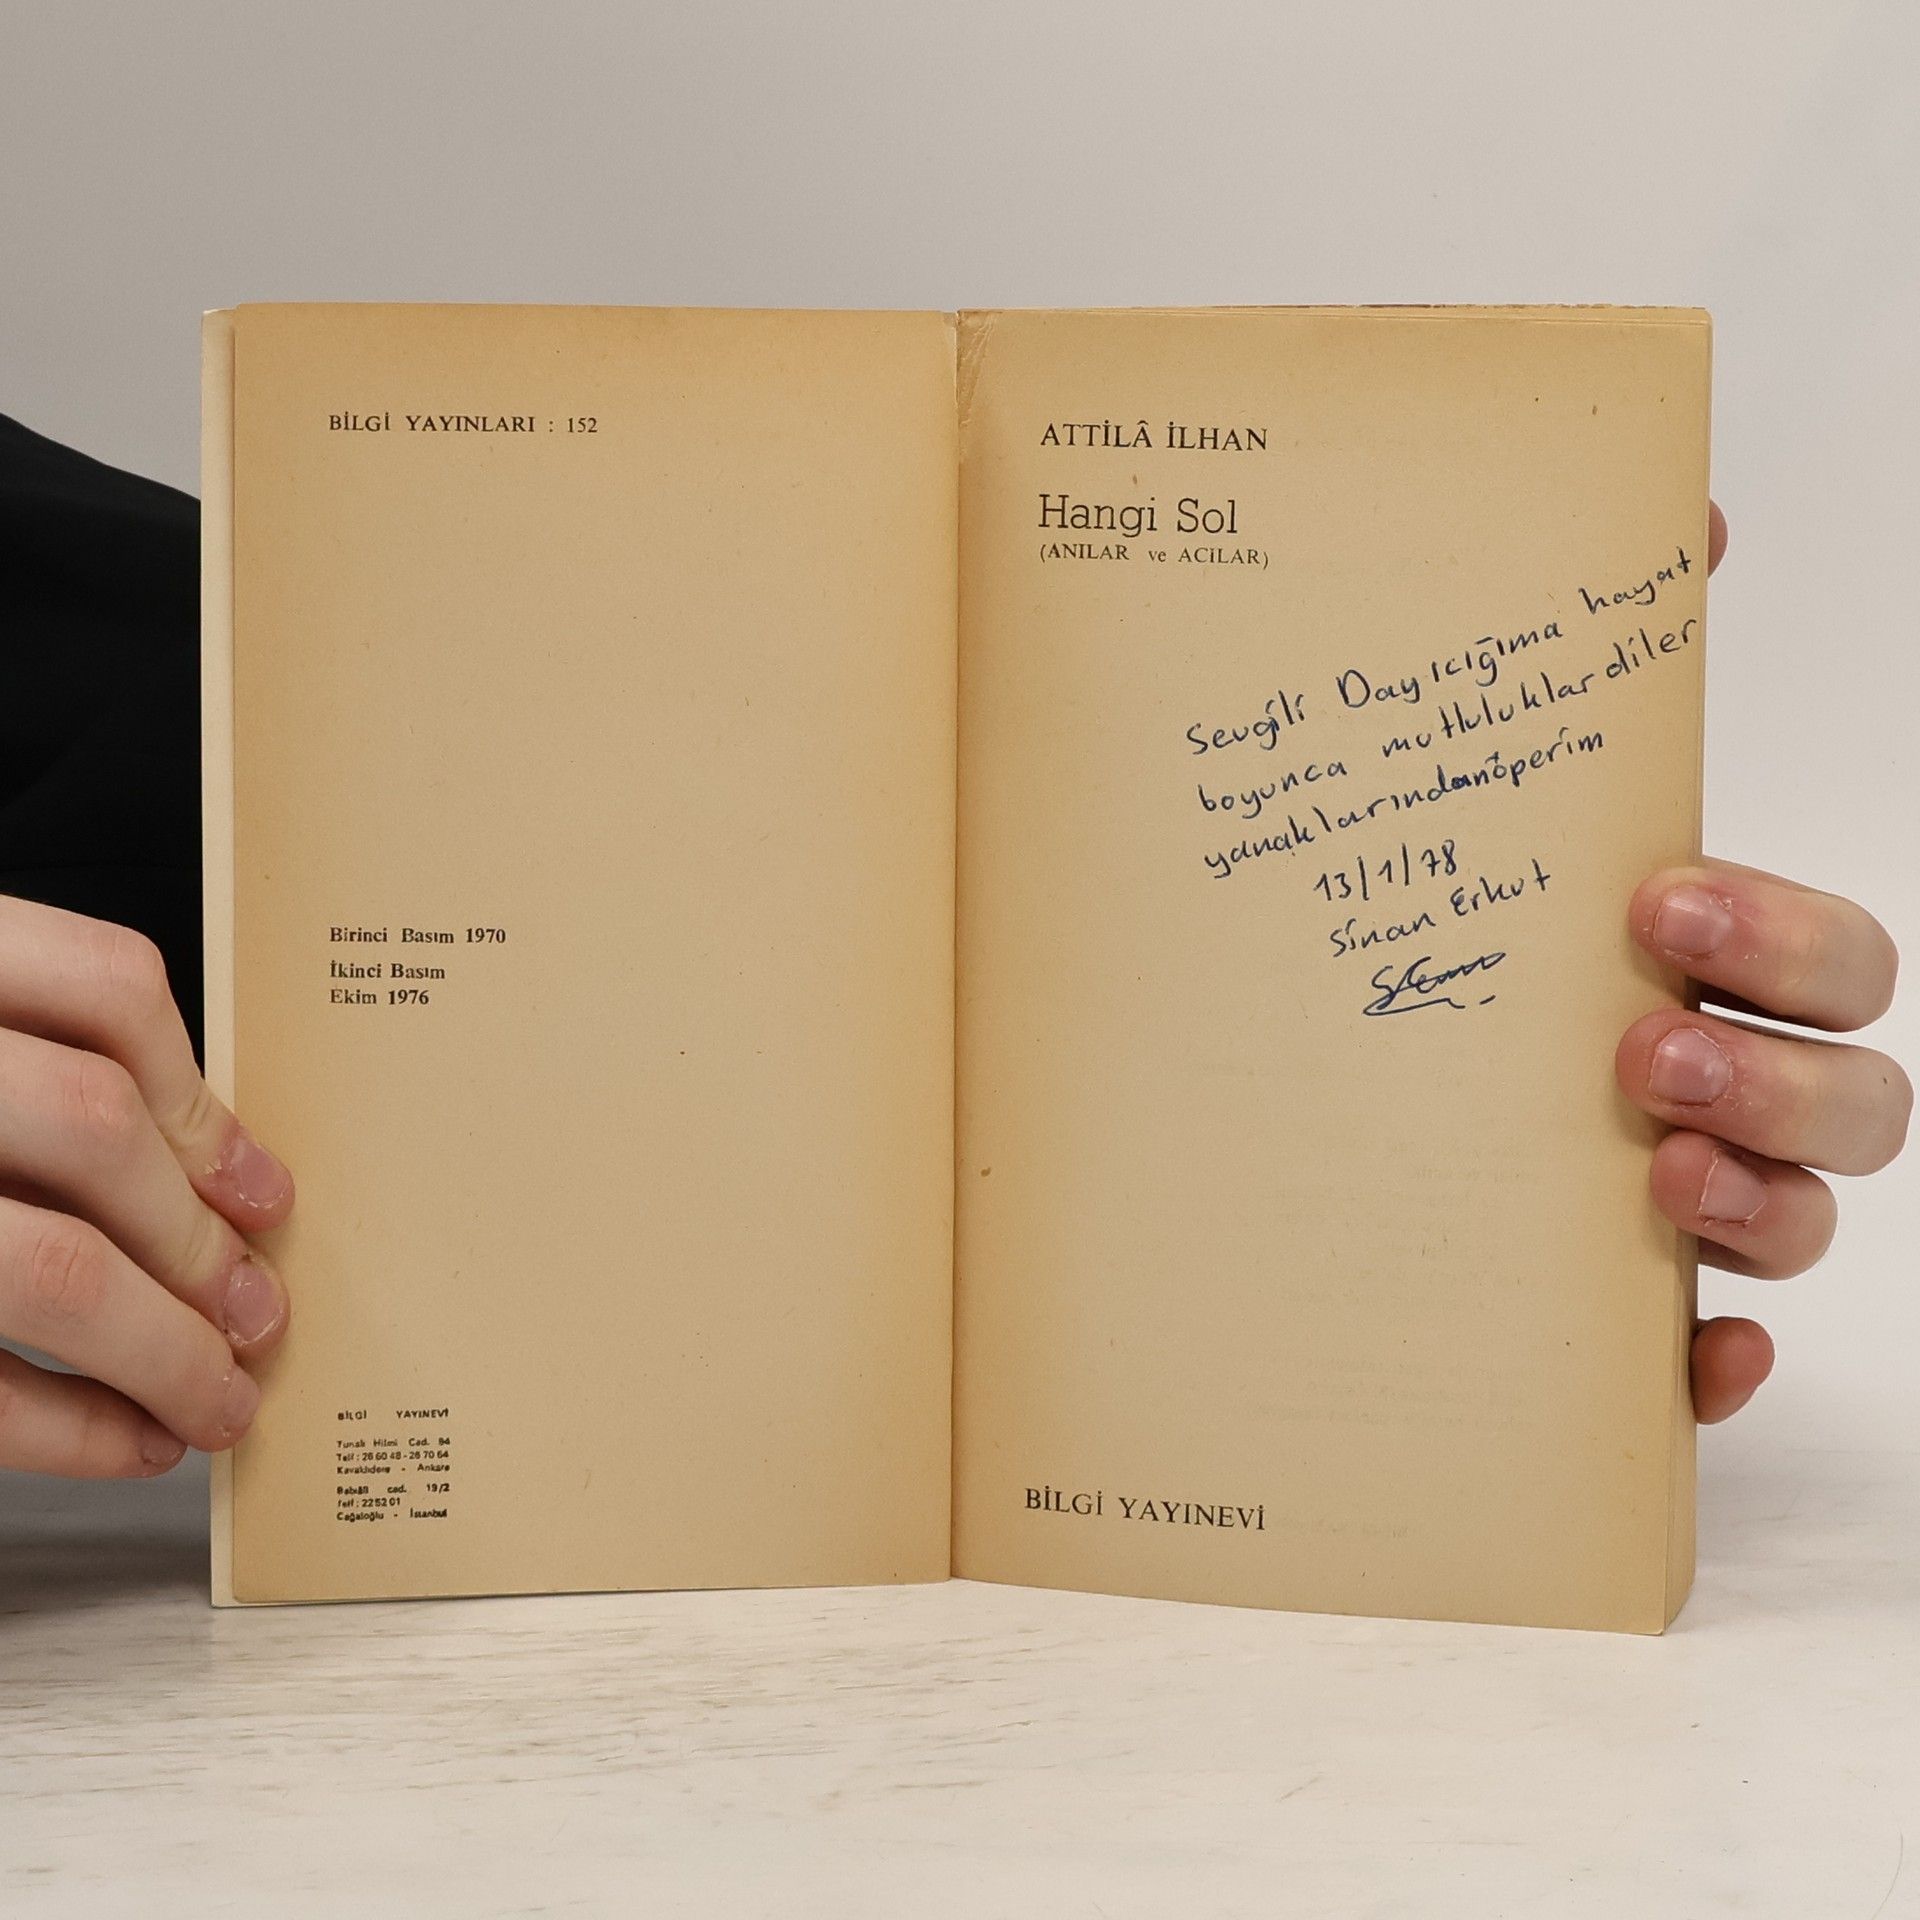 BİLGİ YAYINLARI : 152
Birinci Basım 1970
İkinci Basım
Ekim 1976
BİLGİ YAYINEVİ
Tunalı Hilmi Cad. 94
Telf : 26 60 48 - 26 70 64
Kavaklıdere - Ankara
Babıâli cad. 19/2
Telf : 22 52 01
Cağaloğlu - İstanbul
ATTİLÂ İLHAN
Hangi Sol
(ANILAR ve ACILAR)
Sevgili Dayıcığıma hayat
boyunca mutluluklar diler
yanaklarından öperim
13/1/78
Sinan Erkut
BİLGİ YAYINEVİ